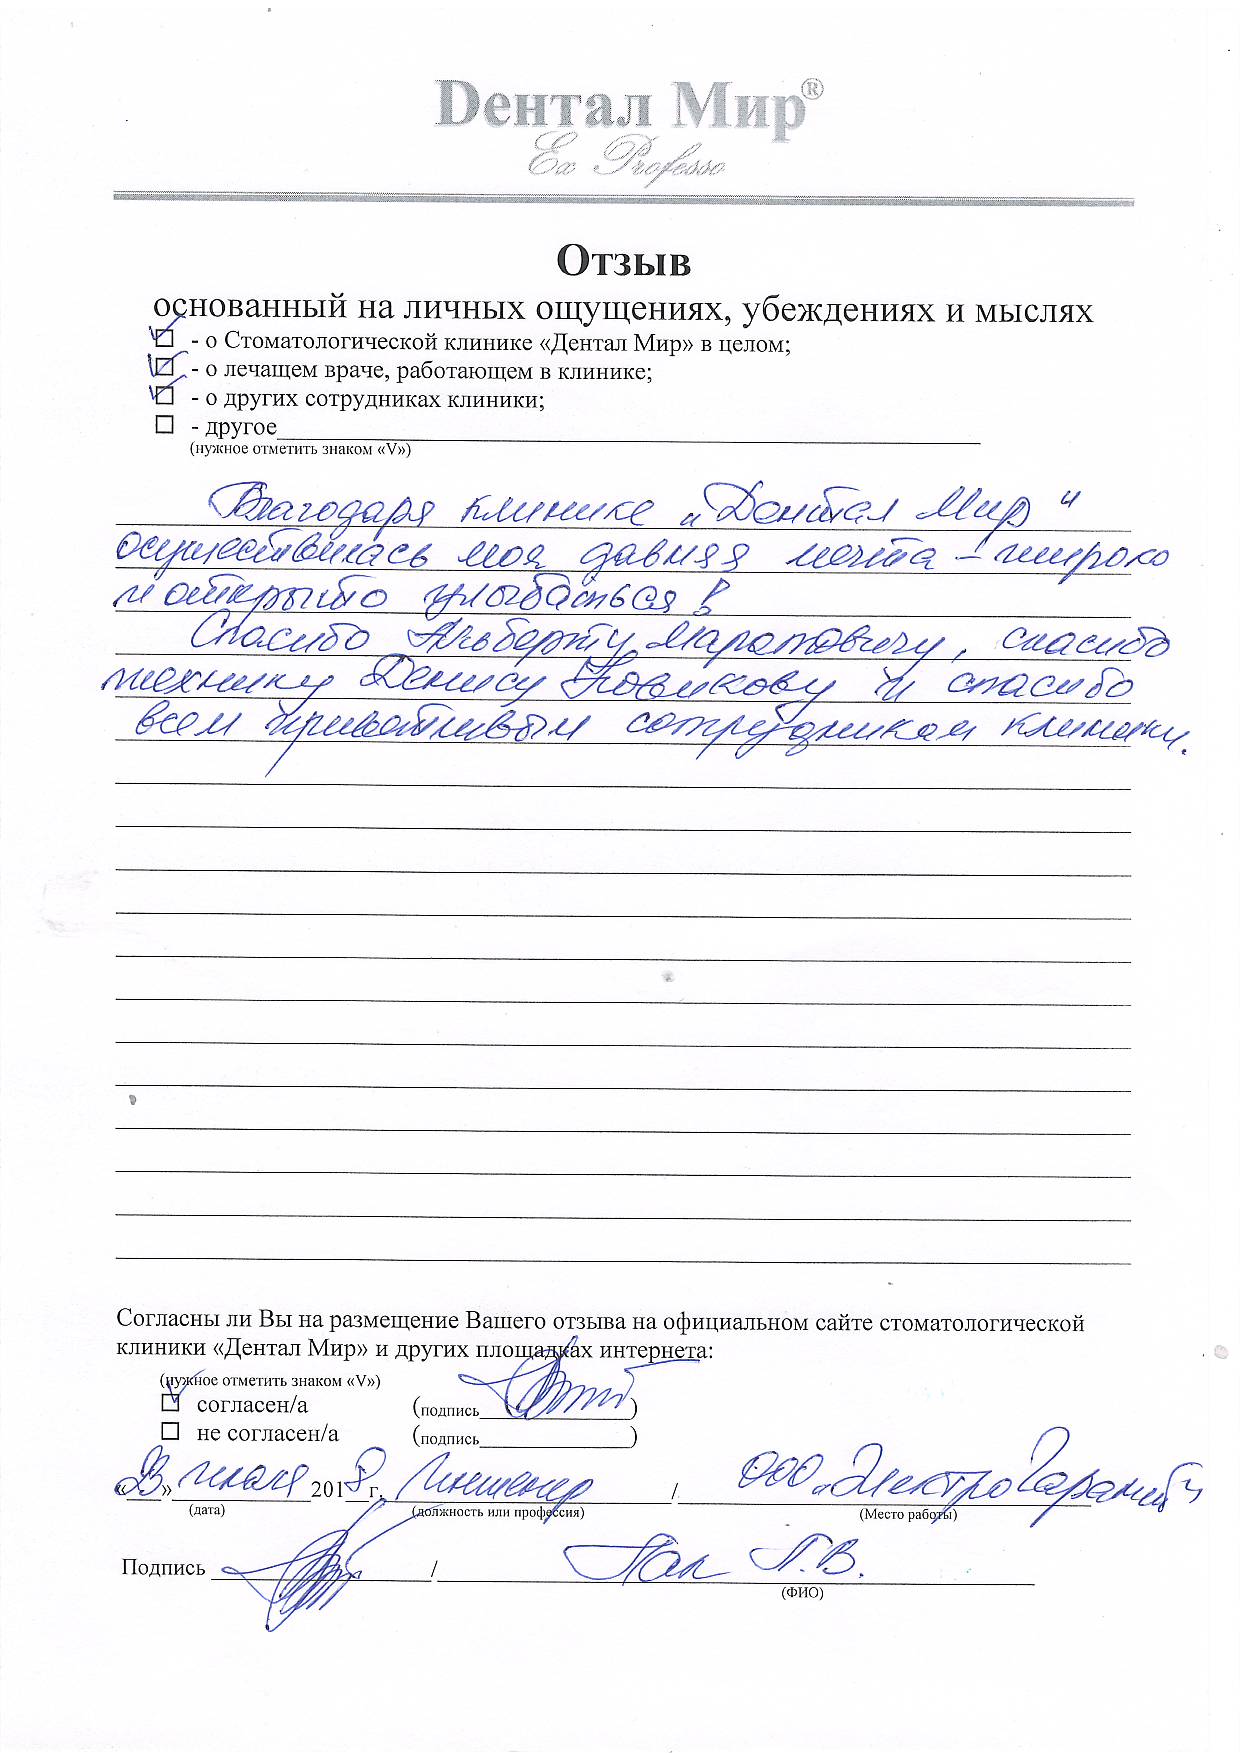 Dентал Мир®
Ex Professo
Отзыв
основанный на личных ощущениях, убеждениях и мыслях
- о Стоматологической клинике «Дентал Мир» в целом;
- о лечащем враче, работающем в клинике;
- о других сотрудниках клиники;
- другое
(нужное отметить знаком «V»)
Благодаря клинике „Дентал Мир“
осуществилась моя давняя мечта – широко
и открыто улыбаться!
Спасибо Альберту Маратовичу, спасибо
технику Денису Новикову и спасибо
всем приветливым сотрудникам клиники.
Согласны ли Вы на размещение Вашего отзыва на официальном сайте стоматологической
клиники «Дентал Мир» и других площадках интернета:
(нужное отметить знаком «V»)
согласен/а (подпись )
не согласен/а (подпись )
« » июля 2018 г. Инженер / ООО „ЭлектроГарант“
(дата) (должность или профессия) (Место работы)
Подпись / Пак Л.В.
(ФИО)